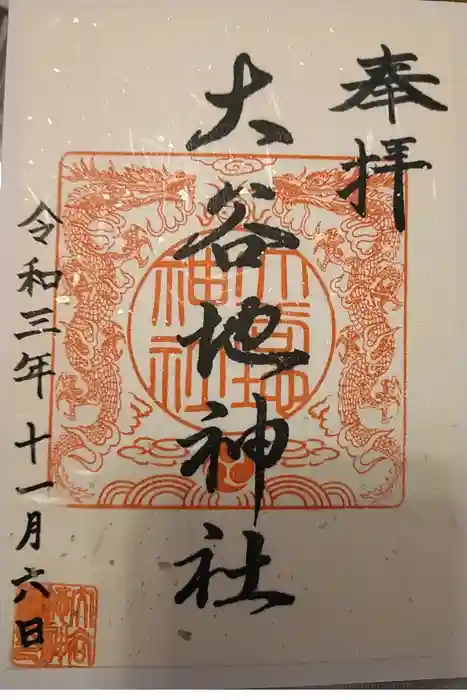 奉拝
大谷地神社
大谷地神社
令和三年十一月六日